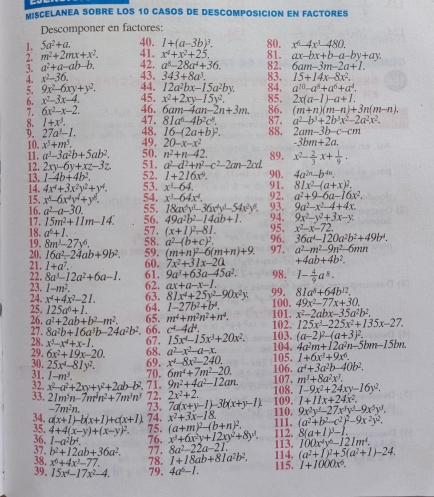 MISCELANEA SOBRE LOS 10 CASOS DE DESCOMPOSICION EN FACTORES
Descomponer en factores:
1. 5a²+a.
2. m²+2mx+x².
3. a²+a–ab–b.
4. x²–36.
5. 9x²–6xy+y².
6. x²–3x–4.
7. 6x²–x–2.
8. 1+x³.
9. 27a³–1.
10. x⁵+m⁵.
11. a³–3a²b+5ab².
12. 2xy–6y+xz–3z.
13. 1–4b+4b².
14. 4x⁴+3x²y²+y⁴.
15. x⁸–6x⁴y⁴+y⁸.
16. a²–a–30.
17. 15m²+11m–14.
18. a⁶+1.
19. 8m³–27y⁶.
20. 16a²–24ab+9b².
21. 1+a⁷.
22. 8a³–12a²+6a–1.
23. 1–m².
24. x⁴+4x²–21.
25. 125a⁶+1.
26. a²+2ab+b²–m².
27. 8a²b+16a³b–24a²b².
28. x⁵–x⁴+x–1.
29. 6x²+19x–20.
30. 25x⁴–81y².
31. 1–m³.
32. x²–a²+2xy+y²+2ab–b².
33. 21m⁵n–7m⁴n²+7m³n³
–7m²n.
34. a(x+1)–b(x+1)+c(x+1).
35. 4+4(x–y)+(x–y)².
36. 1–a²b⁴.
37. b²+12ab+36a².
38. x⁶+4x³–77.
39. 15x⁴–17x²–4.
40. 1+(a–3b)³.
41. x⁴+x²+25.
42. a⁸–28a⁴+36.
43. 343+8a³.
44. 12a²bx–15a²by.
45. x²+2xy–15y².
46. 6am–4an–2n+3m.
47. 81a⁶–4b²c⁸.
48. 16–(2a+b)².
49. 20–x–x²
50. n²+n–42.
51. a²–d²+n²–c²–2an–2cd.
52. 1+216x⁹.
53. x³–64.
54. x³–64x⁴.
55. 18ax⁵y³–36x⁴y³–54x²y⁸.
56. 49a²b²–14ab+1.
57. (x+1)²–81.
58. a²–(b+c)².
59. (m+n)²–6(m+n)+9.
60. 7x²+31x–20.
61. 9a³+63a–45a².
62. ax+a–x–1.
63. 81x⁴+25y²–90x²y.
64. 1–27b²+b⁴.
65. m⁴+m²n²+n⁴.
66. c⁴–4d⁴.
67. 15x⁴–15x³+20x².
68. a²–x²–a–x.
69. x⁴–8x²–240.
70. 6m⁴+7m²–20.
71. 9n²+4a²–12an.
72. 2x²+2.
73. 7a(x+y–1)–3b(x+y–1).
74. x²+3x–18.
75. (a+m)²–(b+n)².
76. x³+6x²y+12xy²+8y³.
77. 8a²–22a–21.
78. 1+18ab+81a²b².
79. 4a⁶–1.
80. x⁶–4x³–480.
81. ax–bx+b–a–by+ay.
82. 6am–3m–2a+1.
83. 15+14x–8x².
84. a¹⁰–a⁸+a⁶+a⁴.
85. 2x(a–1)–a+1.
86. (m+n)(m–n)+3n(m–n).
87. a²–b³+2b³x²–2a²x².
88. 2am–3b–c–cm
–3bm+2a.
89. x²–⅔x+⅑.
90. 4a²ⁿ–b⁴ⁿ.
91. 81x²–(a+x)².
92. a²+9–6a–16x².
93. 9a²–x²–4+4x.
94. 9x²–y²+3x–y.
95. x²–x–72.
96. 36a⁴–120a²b²+49b⁴.
97. a²–m²–9n²–6mn
+4ab+4b².
98. 1–⁴⁄₉a⁸.
99. 81a⁸+64b¹².
100. 49x²–77x+30.
101. x²–2abx–35a²b².
102. 125x³–225x²+135x–27.
103. (a–2)²–(a+3)².
104. 4a²m+12a²n–5bm–15bn.
105. 1+6x³+9x⁶.
106. a⁴+3a²b–40b².
107. m³+8a³x³.
108. 1–9x²+24xy–16y².
109. 1+11x+24x².
110. 9x²y³–27x³y³–9x⁵y³.
111. (a²+b²–c²)²–9x²y².
112. 8(a+1)³–1.
113. 100x⁴y⁶–121m⁴.
114. (a²+1)²+5(a²+1)–24.
115. 1+1000x⁶.